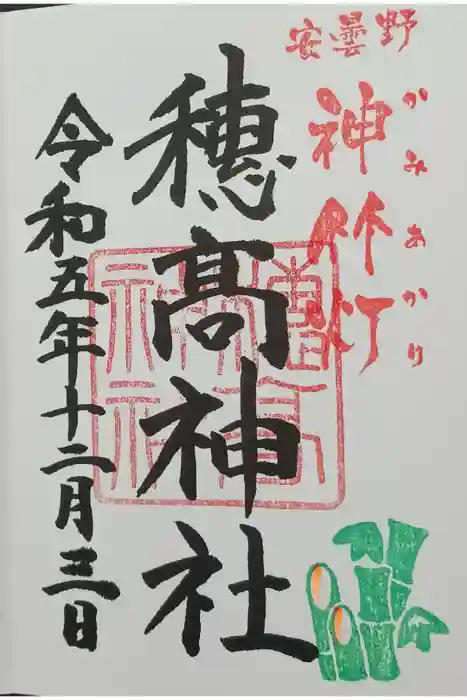 安曇野
神竹灯
かみあかり
穂髙神社
令和五年十二月三日